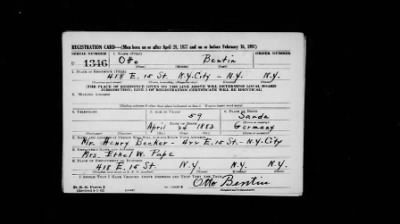 REGISTRATION CARD—(Men born on or after April 28, 1877 and on or before February 16, 1897)
SERIAL NUMBER 1. NAME (Print) ORDER NUMBER
U 1346 Otto Bentin
2. PLACE OF RESIDENCE (Print)
418 E. 15 St. N.Y. City - N.Y. N.Y.
[THE PLACE OF RESIDENCE GIVEN ON THE LINE ABOVE WILL DETERMINE LOCAL BOARD
JURISDICTION; LINE 2 OF REGISTRATION CERTIFICATE WILL BE IDENTICAL]
3. MAILING ADDRESS
4. TELEPHONE 5. AGE IN YEARS 6. PLACE OF BIRTH
59 Sande
DATE OF BIRTH
April 24 1883 Germany
Mr. Henry Becker - 422 E. 15 St. - N.Y. City
8. EMPLOYER'S NAME AND ADDRESS
Mrs. Ethel W. Pape
9. PLACE OF EMPLOYMENT OR BUSINESS
418 E. 15 St. N.Y. N.Y. N.Y.
I AFFIRM THAT I HAVE VERIFIED ABOVE ANSWERS AND THAT THEY ARE TRUE.
D. S. S. Form 1
Otto Bentin